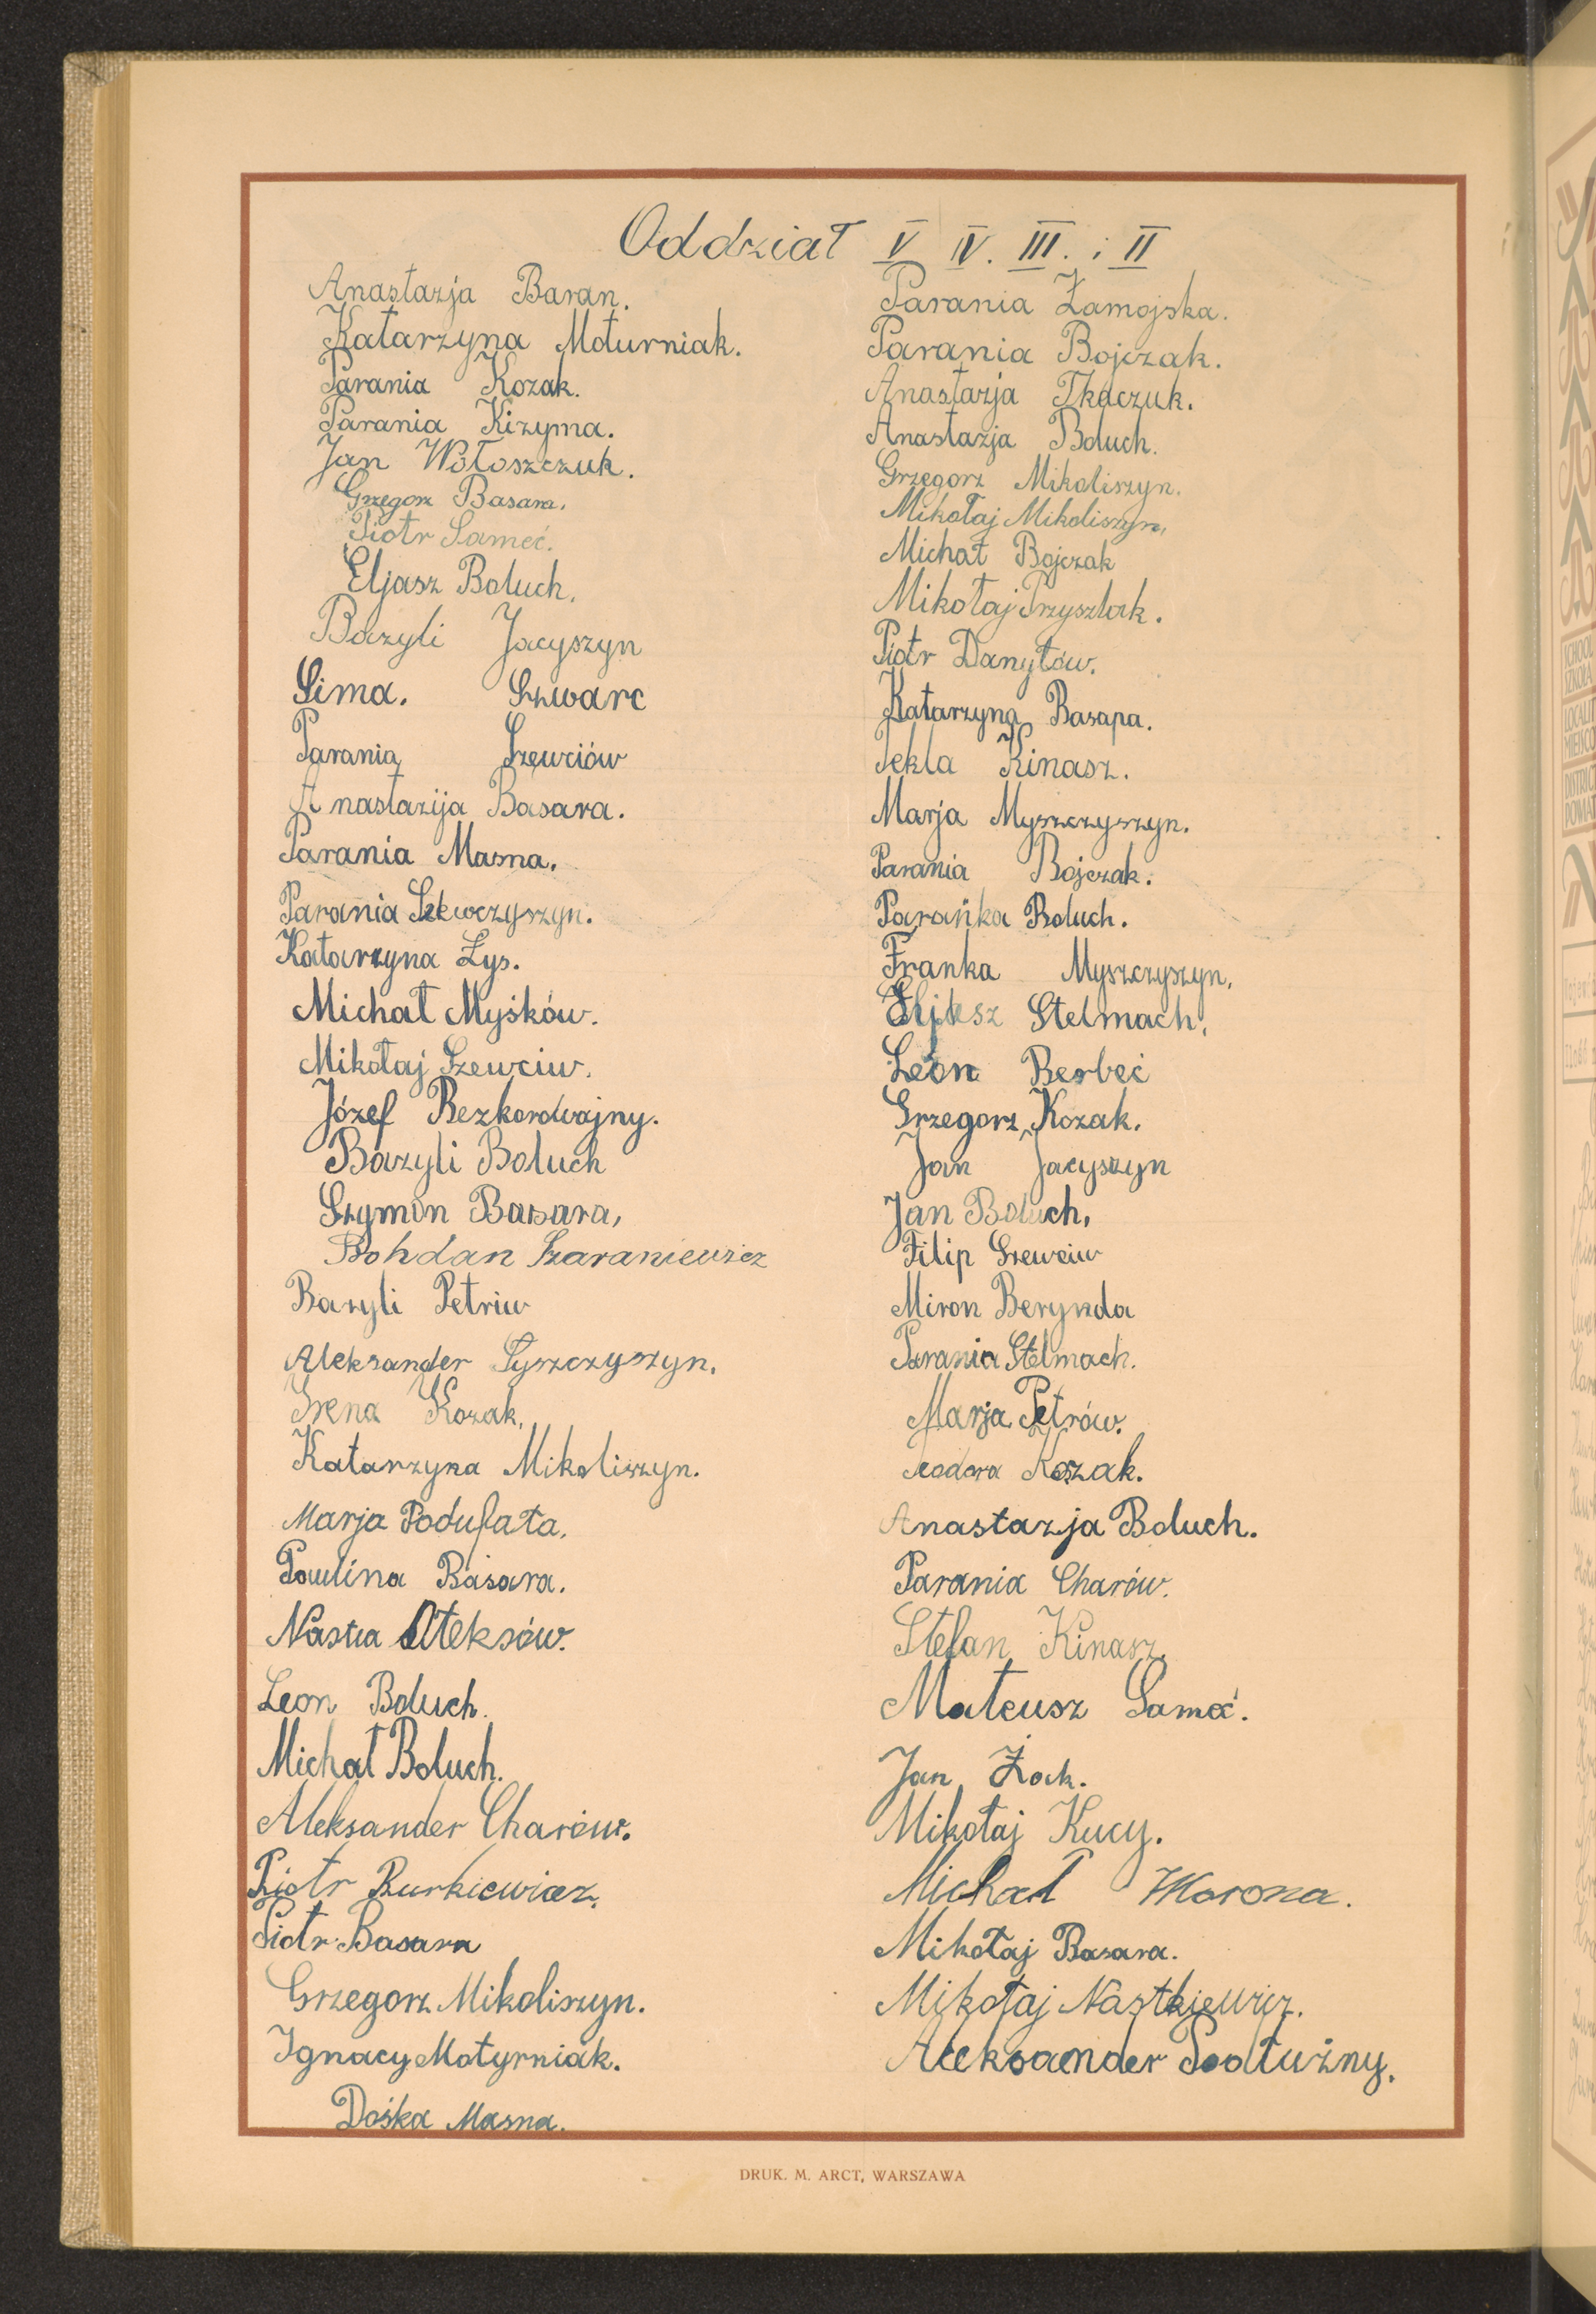 Oddział V IV. III. i II
Anastazja Baran.
Katarzyna Moturniak.
Parania Kozak.
Parania Kizyma.
Jan Wołoszczuk.
Grzegorz Basara.
Piotr Sameć.
Eljasz Boluch.
Bazyli Jacyszyn
Sima. Szwarc
Parania Szewciów
Anastazija Basara.
Parania Masna.
Parania Szewczyszyn.
Katarzyna Łys.
Michał Myśków.
Mikołaj Szewciw.
Józef Bezkorowajny.
Bazyli Boluch
Szymon Basara,
Bohdan Szaraniewicz
Bazyli Petriw
Aleksander Tyszczyszyn.
Irena Kozak.
Katarzyna Mikoliszyn.
Marja Podufała.
Paulina Basara.
Nastia Ołeksów.
Leon Boluch.
Michał Boluch.
Aleksander Charów.
Piotr Burkiewicz.
Piotr Basara
Grzegorz Mikoliszyn.
Ignacy Motyrniak.
Dośka Masna.
Parania Zamojska.
Parania Bojczak.
Anastazja Tkaczuk.
Anastazja Boluch.
Grzegorz Mikoliszyn.
Mikołaj Mikoliszyn,
Michał Bojczak
Mikołaj Przyszlak.
Piotr Danyłów.
Katarzyna Basapa.
Tekla Kinasz.
Marja Myszczyszyn.
Parania Bojczak.
Parańka Boluch.
Franka Myszczyszyn,
Stelmach,
Leon Berbeć
Grzegorz Kozak.
Jan Jacyszyn
Jan Boluch,
Filip Szewciw
Miron Berynda
Parania Stelmach.
Marja Petrów.
Teodora Kozak.
Anastazja Boluch.
Parania Charów.
Stefan Kinasz.
Mateusz Sameć.
Jan Żock.
Mikołaj Kucy.
Michał Worona.
Mikołaj Basara.
Mikołaj Nastkiewicz.
Aleksander Sołtużny.
DRUK. M. ARCT, WARSZAWA